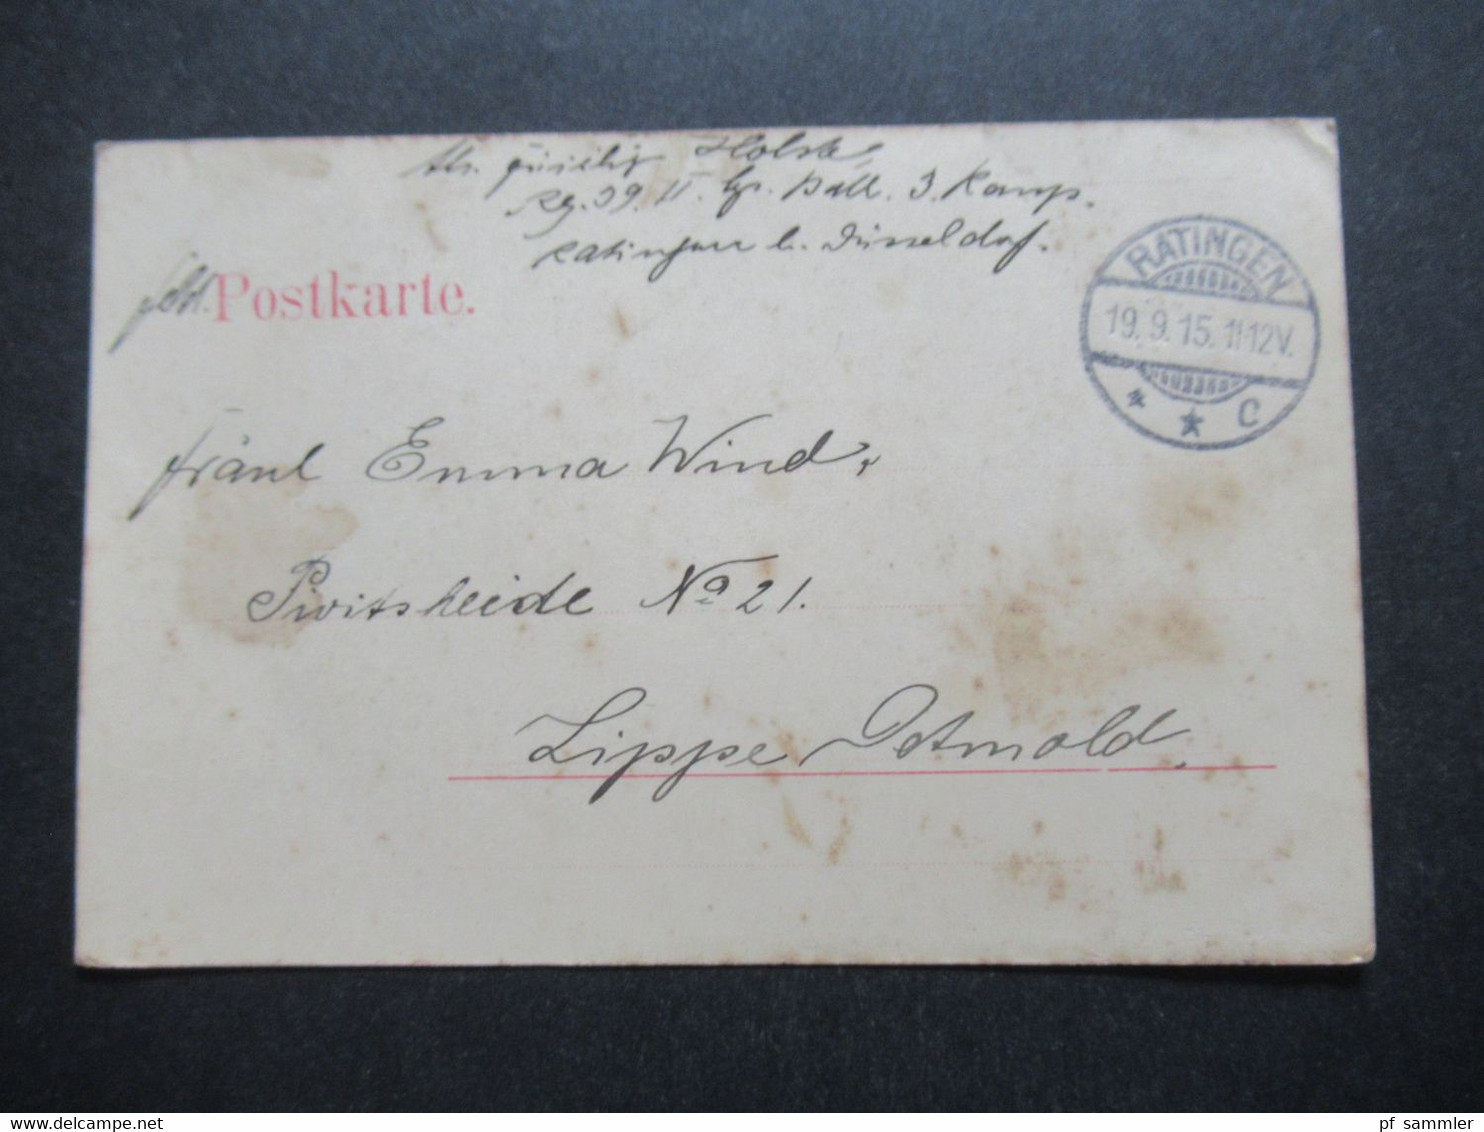 Abs. Füsilier Holste
Rg. 39. II. Ers. Batl. 3. Komp.
Ratingen b. Düsseldorf.
Feld Postkarte.
RATINGEN
19.9.15. 11-12V.
* * C
Fräul Emma Wind,
Pivitsheide No 21.
Lippe Detmold
www.delcampe.net
pf_sammler